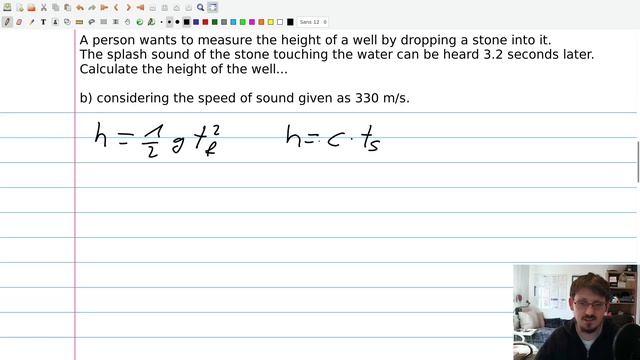 Sans 12
A person wants to measure the height of a well by dropping a stone into it.
The splash sound of the stone touching the water can be heard 3.2 seconds later.
Calculate the height of the well...
b) considering the speed of sound given as 330 m/s.
h = 1/2 g t_f^2 h = c · t_s